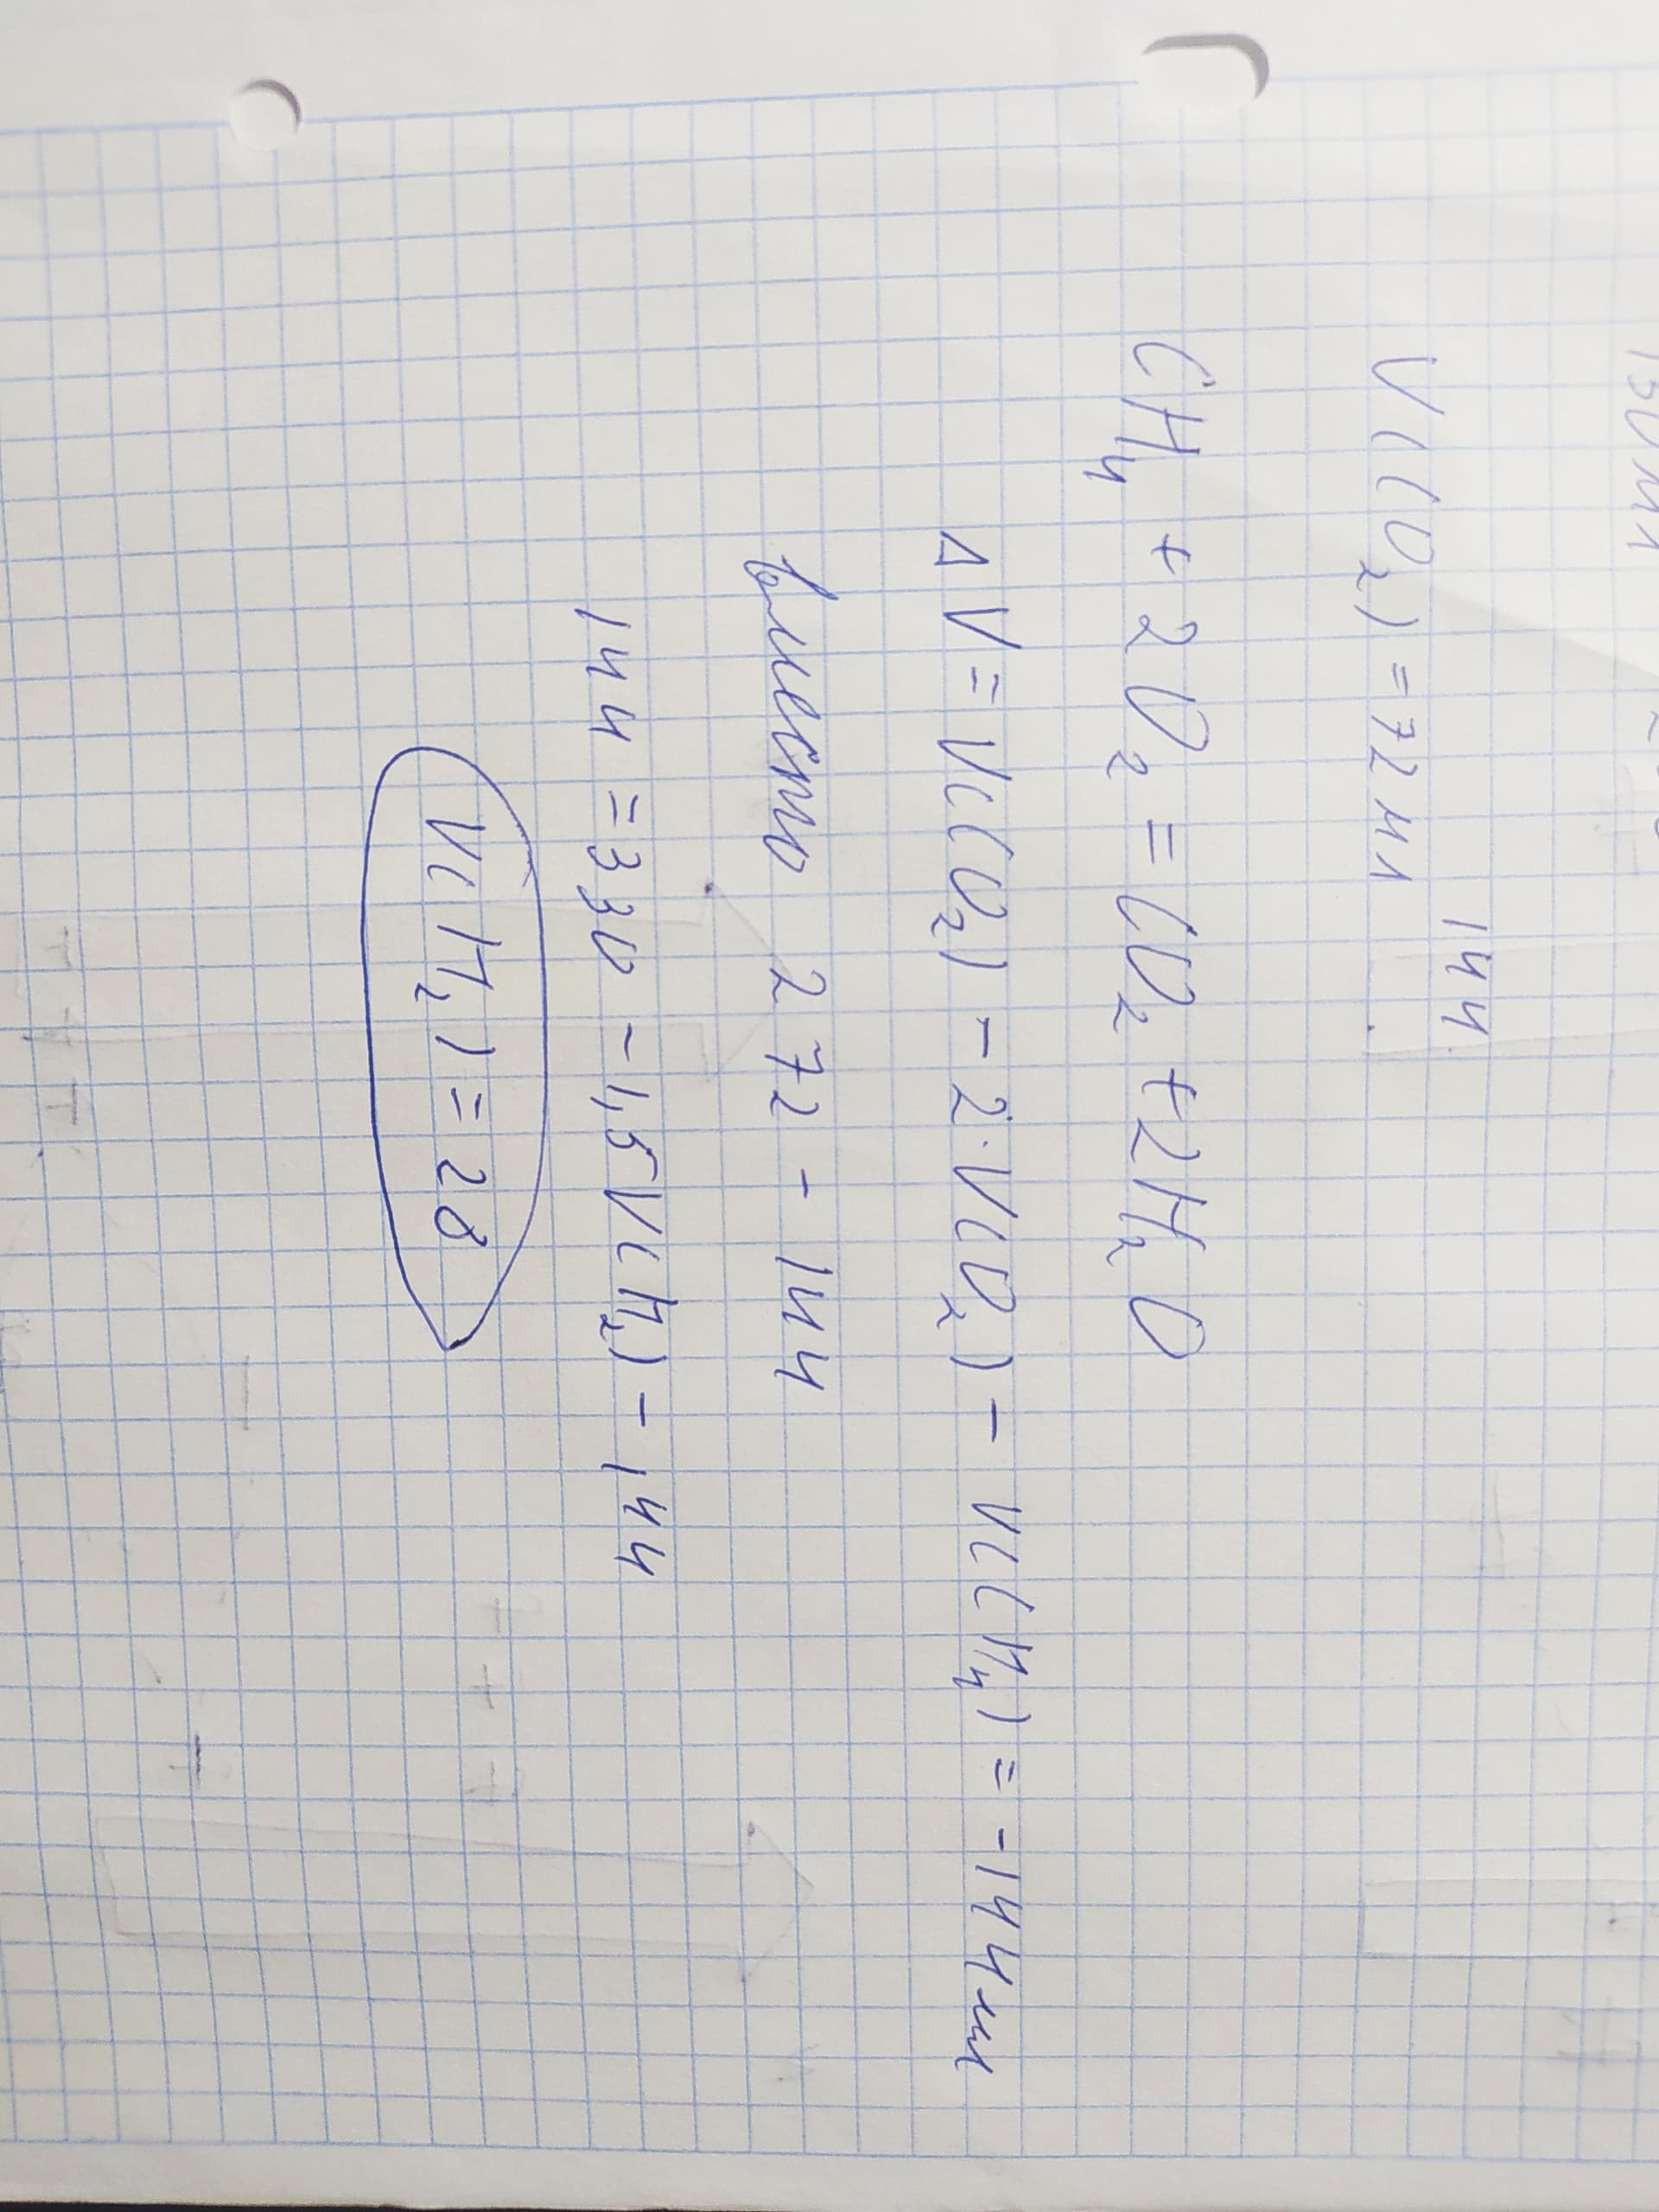 144
V(CO₂) = 72 мл
CH₄ + 2O₂ = CO₂ + 2H₂O
ΔV = V(CO₂) - 2·V(O₂) - V(CH₄) = -144 мл
вместо 272 - 144
144 = 330 - 1,5V(H₂) - 144
V(H₂) = 28